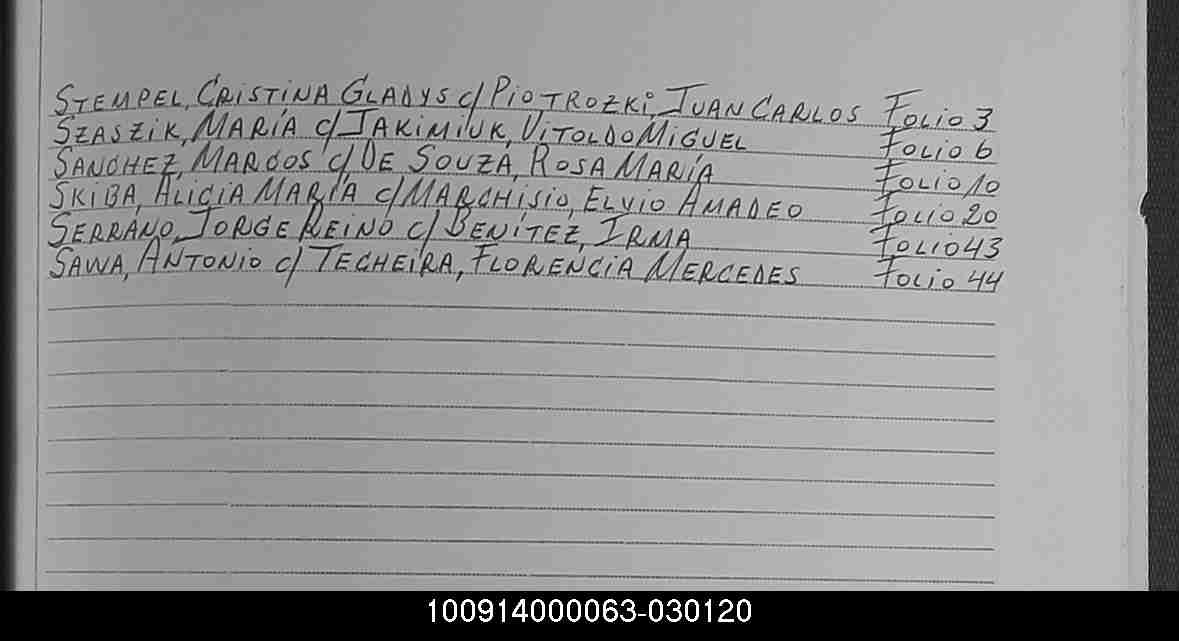 STEMPEL, CRISTINA GLADYS c/ PIOTROZKI, JUAN CARLOS Folio 3
SZASZIK, MARÍA c/ JAKIMIUK, VITOLDO MIGUEL Folio 6
SANCHEZ, MARCOS c/ DE SOUZA, ROSA MARÍA Folio 10
SKIBA, ALICIA MARÍA c/ MARCHISIO, ELVIO AMADEO Folio 20
SERRANO, JORGE REINO c/ BENÍTEZ, IRMA Folio 43
SAWA, ANTONIO c/ TECHEIRA, FLORENCIA MERCEDES Folio 44
100914000063-030120